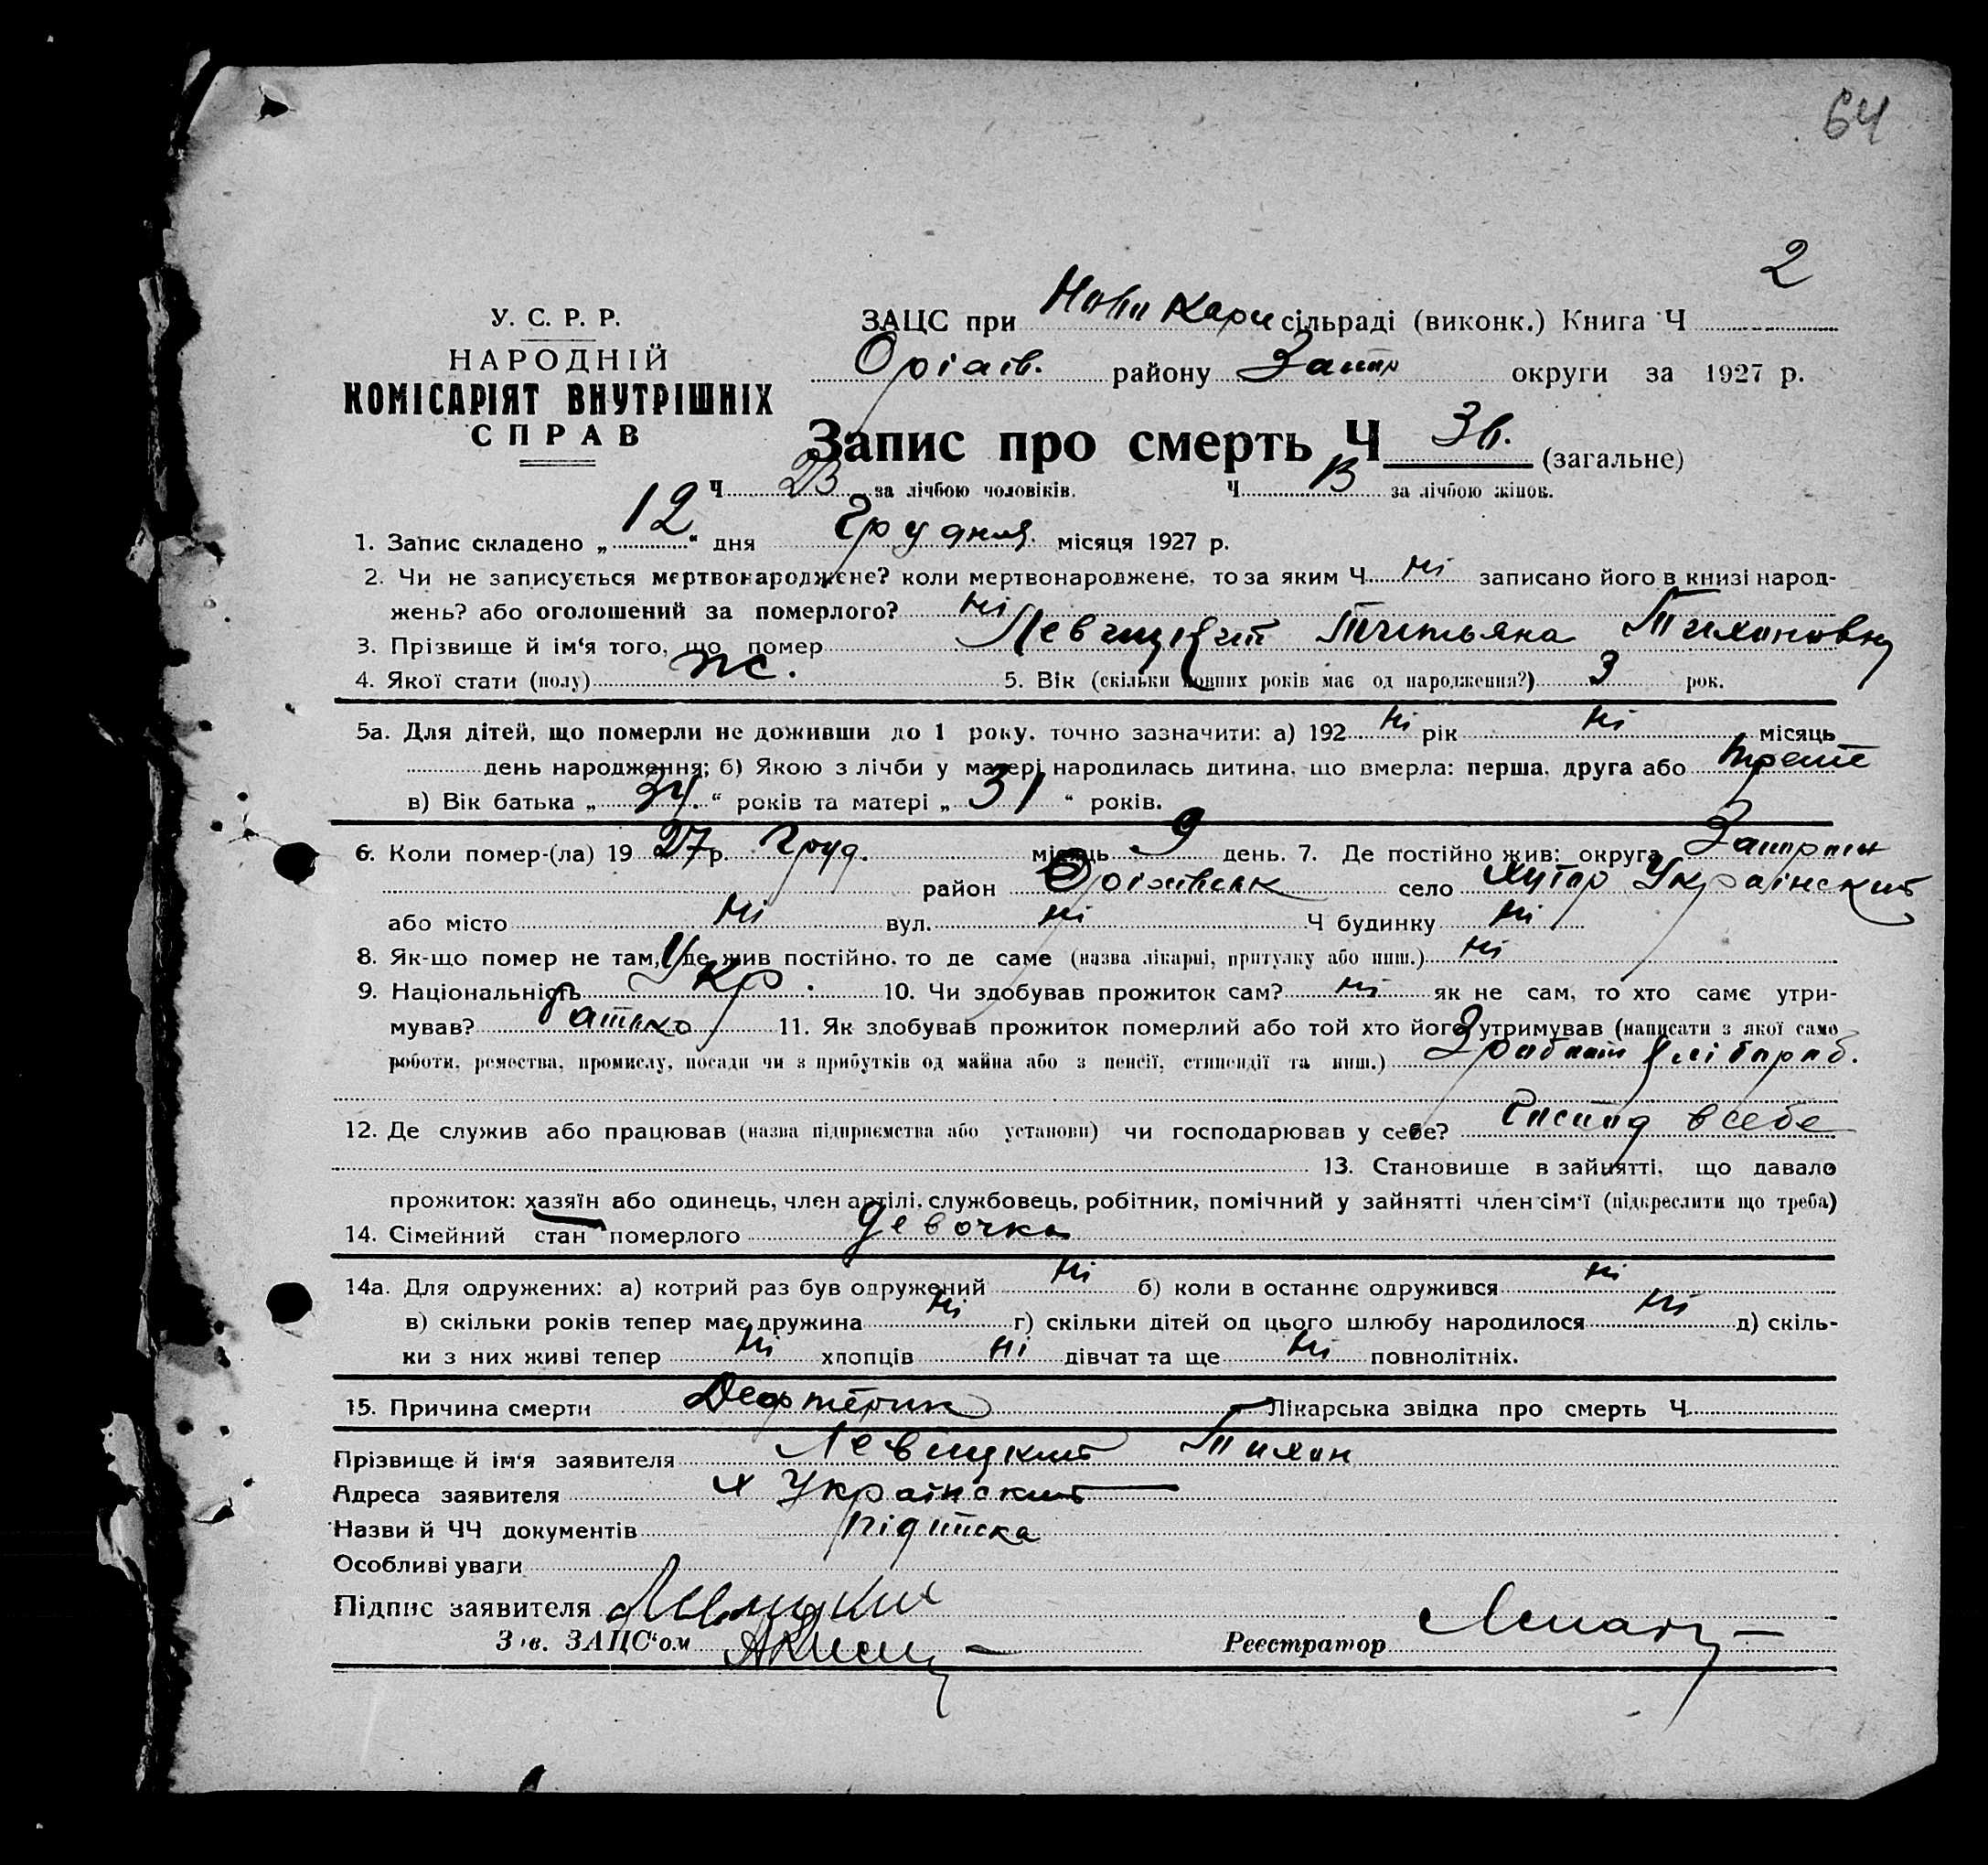 64
2
У. С. Р. Р.
НАРОДНІЙ
КОМІСАРІЯТ ВНУТРІШНІХ
СПРАВ
ЗАЦС при Ново Кари сільраді (виконк.) Книга Ч
району Запор округи за 1927 р.
Запис про смерть Ч 36. (загальне)
Ч 23 за лічбою чоловіків. Ч 13 за лічбою жінок.
1. Запис складено „ 12 “ дня Грудня місяця 1927 р.
2. Чи не записується мертвонароджене? коли мертвонароджене, то за яким Ч ні записано його в книзі народ-
жень? або оголошений за померлого? ні
3. Прізвище й ім‘я того, що помер Левицкий Титьяна Тихоновна
4. Якої стати (полу) ж. 5. Вік (скільки повних років має од народження?) 3 рок.
5а. Для дітей, що померли не доживши до 1 року, точно зазначити: а) 192 ні рік ні місяць
день народження; б) Якою з лічби у матері народилась дитина, що вмерла: перша, друга або трете
в) Вік батька „ 34. “ років та матері „ 31 “ років.
6. Коли помер-(ла) 19 27 р. Груд. місяць 9 день. 7. Де постійно жив: округа
район Оріхівськ село хутор Украінский
або місто ні вул. ні Ч будинку ні
8. Як-що помер не там, де жив постійно, то де саме (назва лікарні, притулку або инш.) ні
9. Національність Укр. 10. Чи здобував прожиток сам? ні як не сам, то хто саме утри-
мував? батько 11. Як здобував прожиток померлий або той хто його утримував (написати з якої само
роботи, ремества, промислу, посади чи з прибутків од майна або з пенсії, стипендії та инш.) З работи хлібороб.
12. Де служив або працював (назва підприємства або установи) чи господарював у себе? в себе
13. Становище в зайнятті, що давало
прожиток: хазяїн або одинець, член артілі, службовець, робітник, помічний у зайнятті член сім‘ї (підкреслити що треба)
14. Сімейний стан померлого девочка
14а. Для одружених: а) котрий раз був одружений ні б) коли в останнє одружився ні
в) скільки років тепер має дружина ні г) скільки дітей од цього шлюбу народилося ні д) скіль-
ки з них живі тепер ні хлопців ні дівчат та ще ні повнолітніх.
15. Причина смерти Дефтерик Лікарська звідка про смерть Ч —
Прізвище й ім‘я заявителя Левицкий Тихон
Адреса заявителя х Украінский
Назви й ЧЧ документів підписка
Особливі уваги
Підпис заявителя Левицкий
Зав. ЗАЦС‘ом
Реєстратор